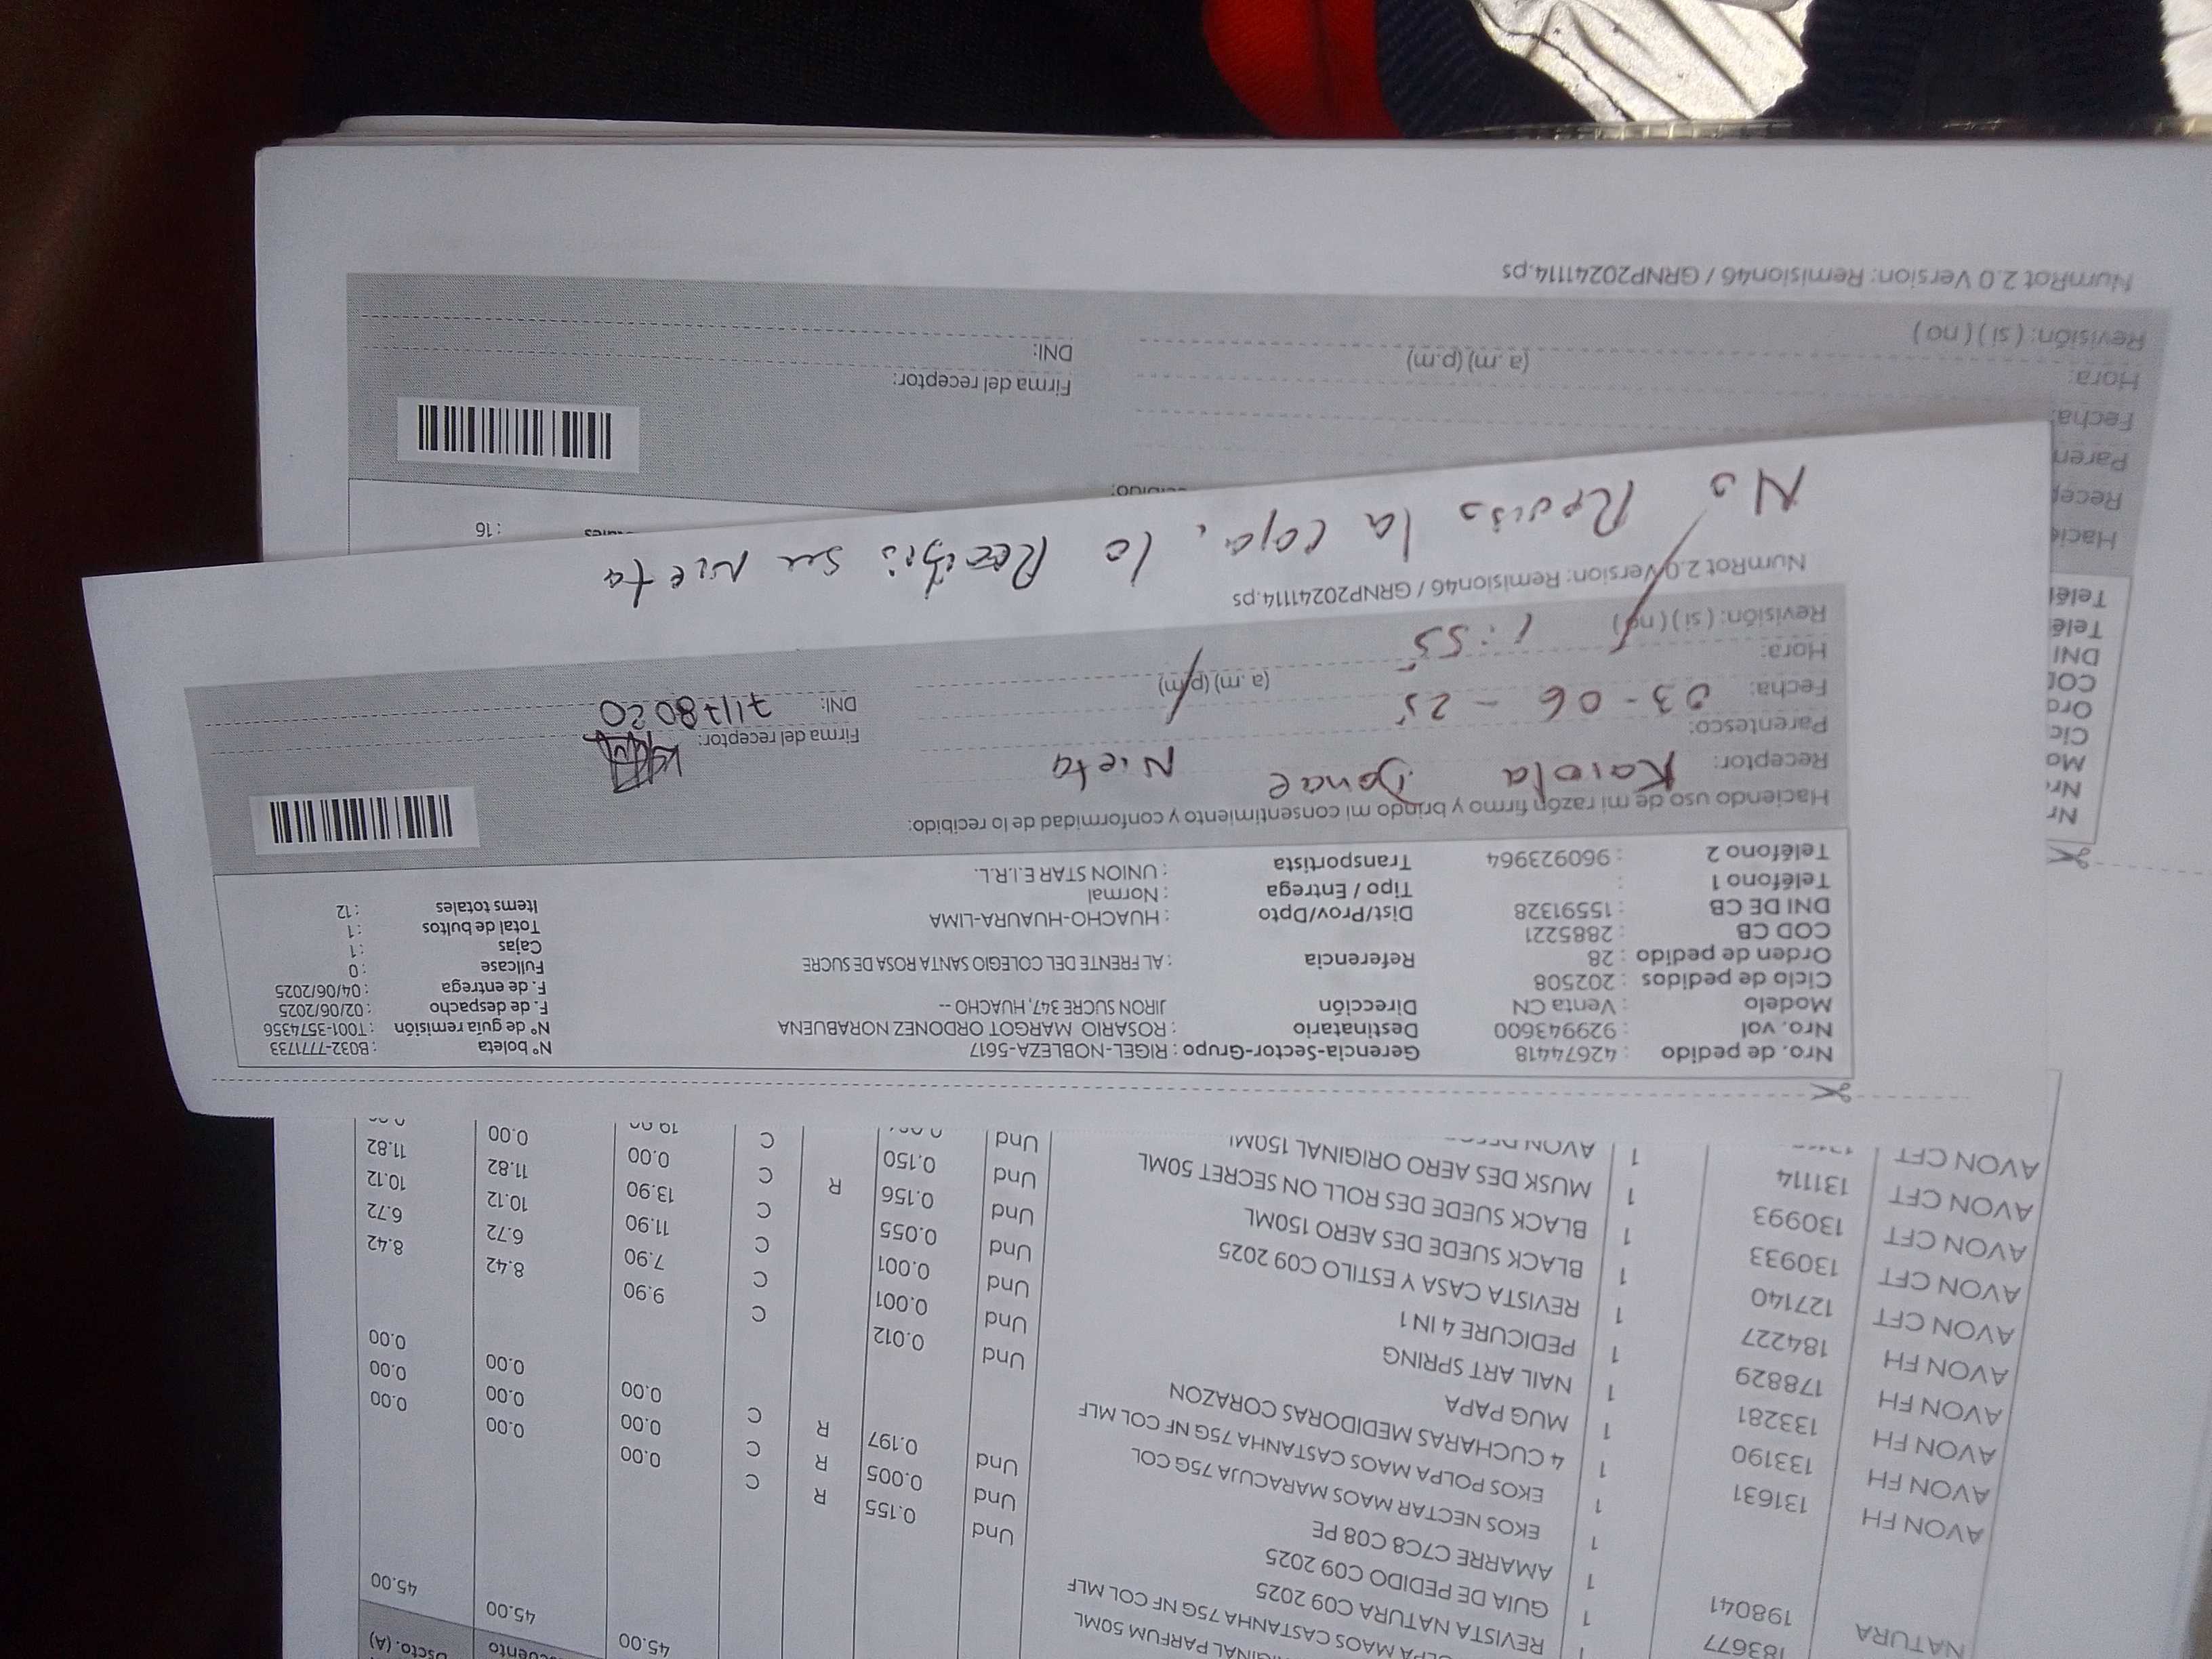 NATURA 183677 1 ORIGINAL PARFUM 50ML
198041 1 MAOS CASTANHA 75G NF COL MLF
1 REVISTA NATURA C09 2025
1 GUIA DE PEDIDO C09 2025
AMARRE C7C8 C08 PE
EKOS NECTAR MAOS MARACUJA 75G COL
EKOS POLPA MAOS CASTANHA 75G NF COL MLF
4 CUCHARAS MEDIDORAS CORAZON
MUG PAPA
NAIL ART SPRING
PEDICURE 4 IN 1
REVISTA CASA Y ESTILO C09 2025
BLACK SUEDE DES AERO 150ML
BLACK SUEDE DES ROLL ON SECRET 50ML
MUSK DES AERO ORIGINAL 150ML
AVON FH 131631
AVON FH 133190
AVON FH 133281
AVON FH 178829
AVON FH 184227
AVON CFT 127140
AVON CFT 130933
AVON CFT 130993
AVON CFT 131114
AVON CFT
Und 0.155 R C
Und 0.005 R C
Und 0.197 R C
Und 0.012
Und 0.001 C
Und 0.001 C
Und 0.055 C
Und 0.156 C
Und 0.150 R C
Und C
45.00 45.00 45.00
0.00 0.00 0.00
0.00 0.00 0.00
0.00 0.00 0.00
9.90 8.42 8.42
7.90 6.72 6.72
11.90 10.12 10.12
13.90 11.82 11.82
0.00 0.00
Nro. de pedido : 42674418 Gerencia-Sector-Grupo : RIGEL-NOBLEZA-5617 Nº boleta : B032-7771733
Nro. vol : 929943600 Destinatario : ROSARIO MARGOT ORDONEZ NORABUENA Nº de guía remisión : T001-3574356
Modelo : Venta CN Dirección JIRON SUCRE 347, HUACHO -- F. de despacho : 02/06/2025
Ciclo de pedidos : 202508 F. de entrega : 04/06/2025
Orden de pedido : 28 Referencia : AL FRENTE DEL COLEGIO SANTA ROSA DE SUCRE Fullcase : 0
COD CB : 2885221 Cajas : 1
DNI DE CB : 15591328 Dist/Prov/Dpto : HUACHO-HUAURA-LIMA Total de bultos : 1
Teléfono 1 : Tipo / Entrega : Normal Items totales : 12
Teléfono 2 : 960923964 Transportista : UNION STAR E.I.R.L.
Haciendo uso de mi razón firmo y brindo mi consentimiento y conformidad de lo recibido:
Receptor: Karola Danae Nieta
Parentesco: Firma del receptor:
Fecha: 03-06-25 DNI: 71178020
Hora: 1:55 (a.m) (p.m)
Revisión: ( si ) ( no )
NumRot 2.0 Version: Remision46 / GRNP20241114.ps
No Reviso la caja, lo Recibió su Nieta
: 16
Telé
Telé
DNI
Mo
Nr
Firma del receptor:
DNI:
Fecha:
Hora: (a.m) (p.m)
Revisión: ( si ) ( no )
NumRot 2.0 Version: Remision46 / GRNP20241114.ps